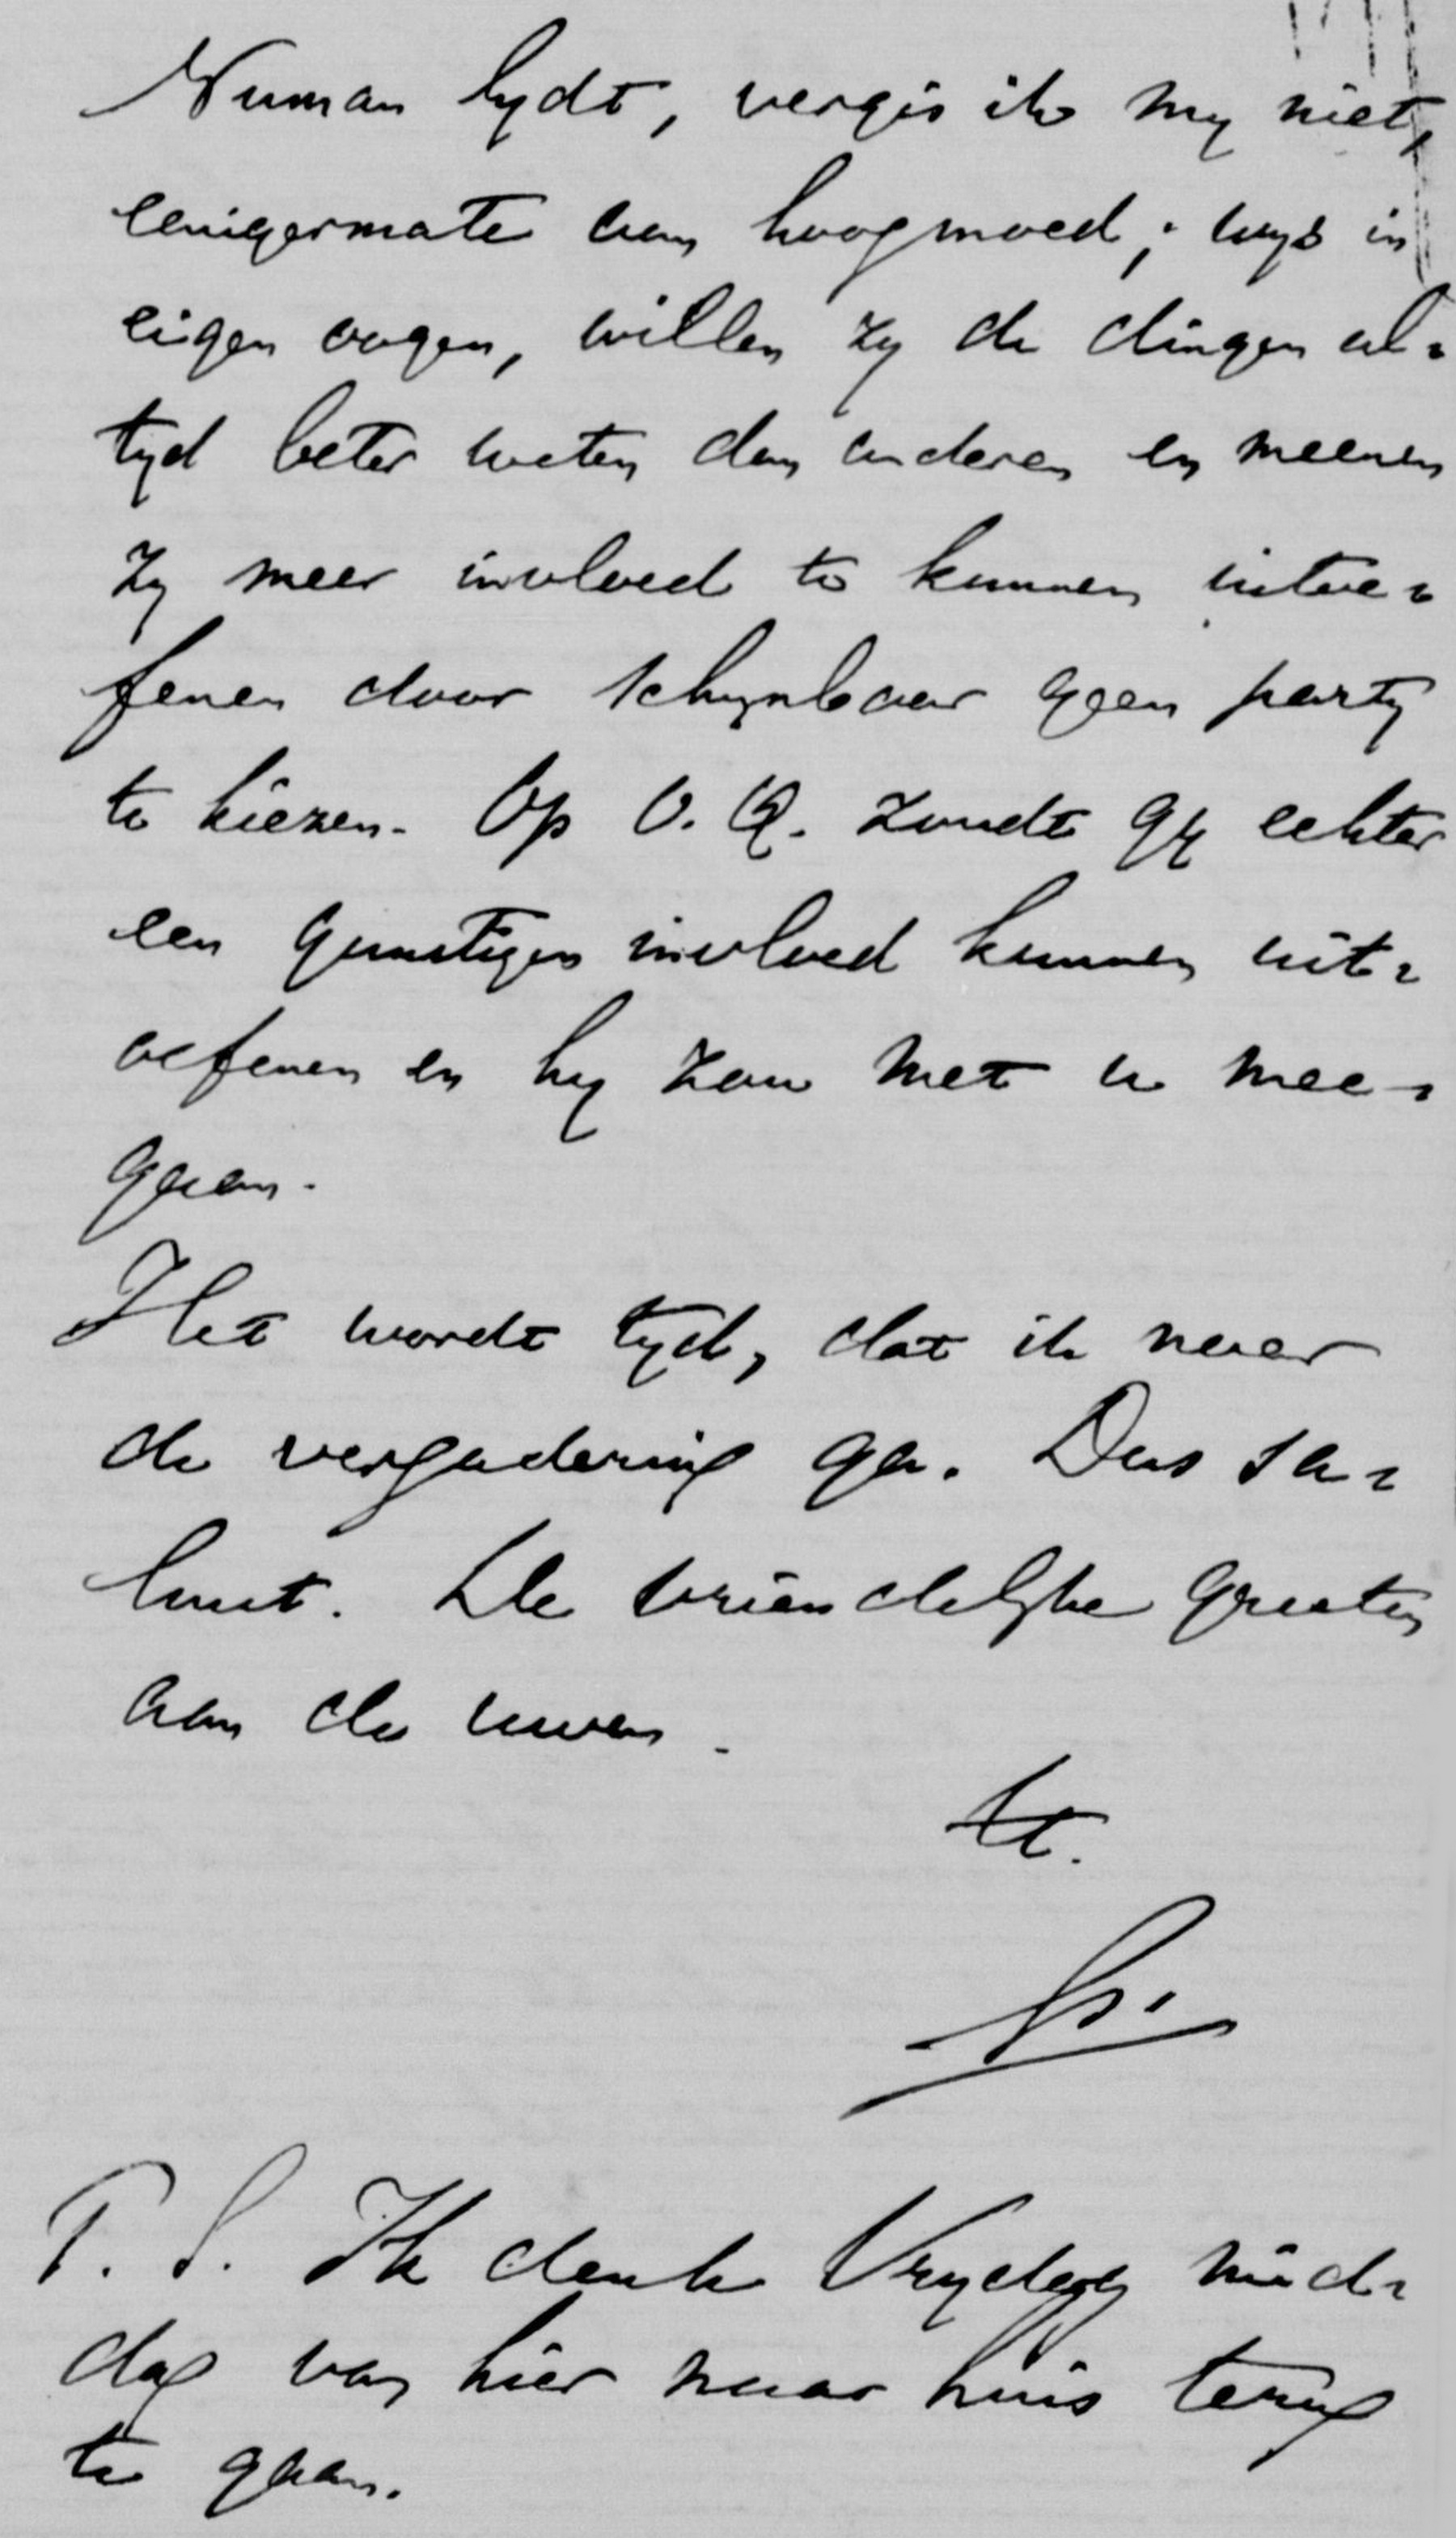 Numan lydt, vergis ik my niet,
eenigermate aan hoogmoed; wys in
eigen oogen, willen zy de dingen al=
tyd beter weten dan anderen en meenen
zy meer invloed te kunnen uitoe=
fenen door schynbaar geen party
te kiezen. Op V. K. zoudt gy echter
een gunstigen invloed kunnen uit=
oefenen en hy zou met u mee=
gaan.
Het wordt tyd, dat ik naar
de vergadering ga. Dus sa=
luut. De vriendelyke groeten
aan de uwen.
tt.
P. S. Ik denk Vrydag mid=
dag van hier naar huis terug
te gaan.